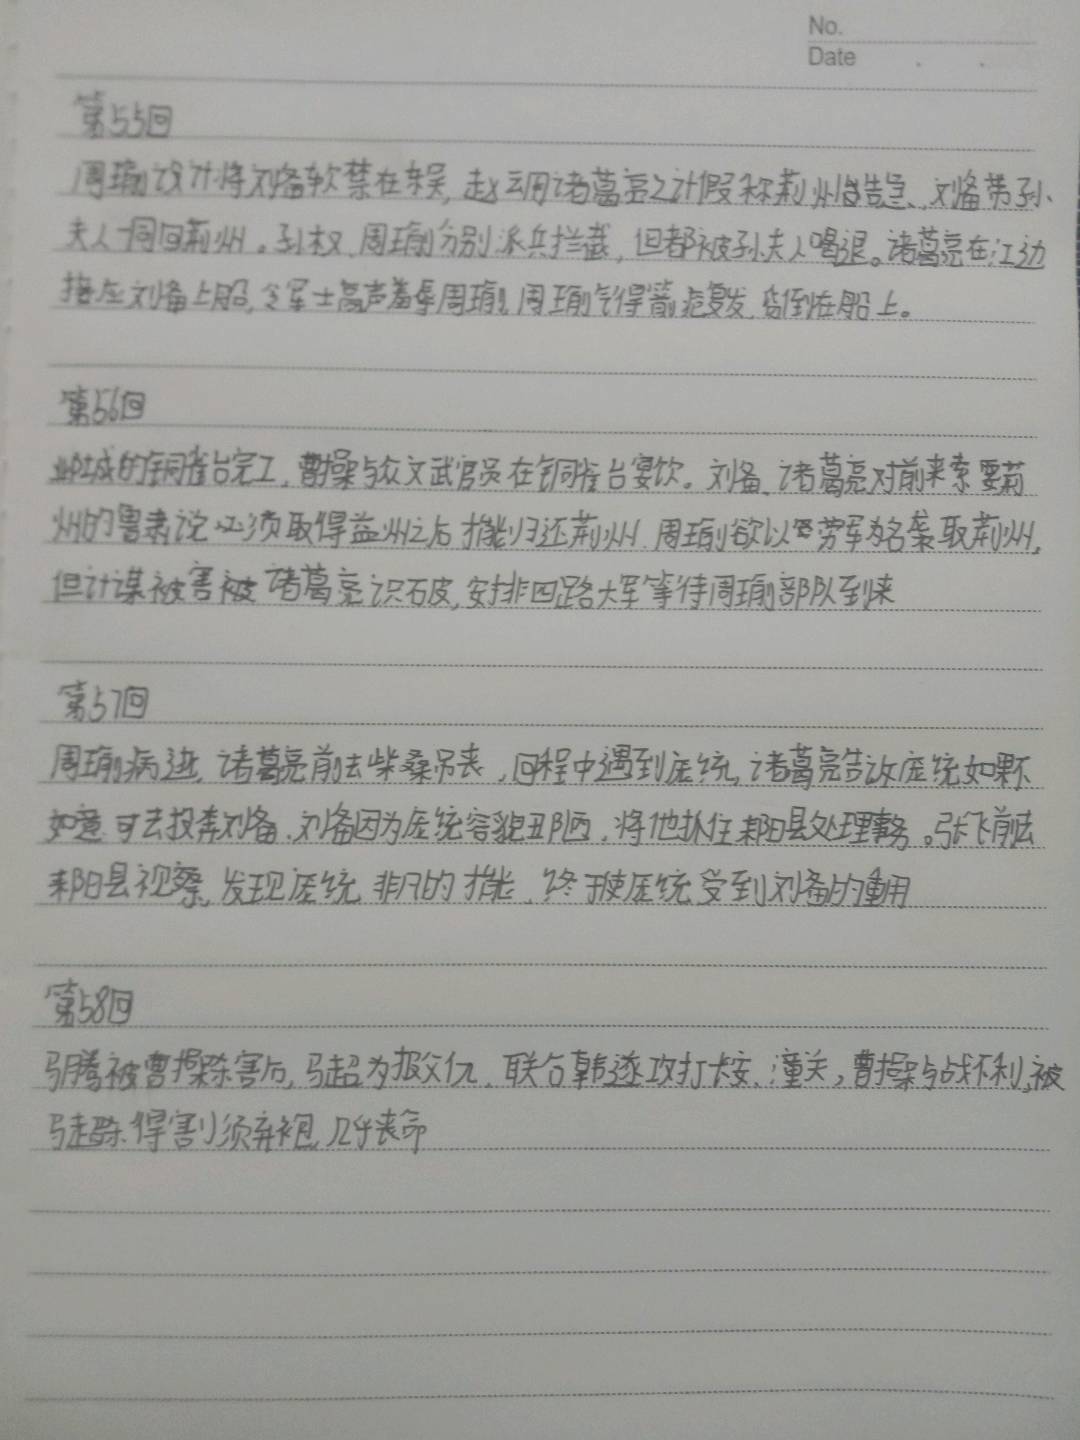 No.
Date
第55回
周瑜设计将刘备软禁在东吴,赵云用诸葛亮之计假称荆州告急、刘备带孙
夫人一同回荆州。孙权、周瑜分别派兵拦截,但都被孙夫人喝退。诸葛亮在江边
接应刘备上船,令军士高声羞辱周瑜,周瑜气得箭疮复发,倒在船上。
第56回
邺城的铜雀台完工,曹操与众文武官员在铜雀台宴饮。刘备、诸葛亮对前来索要荆
州的鲁肃说必须取得益州之后才能归还荆州.周瑜欲以劳军为名袭取荆州,
但计谋被害被诸葛亮识破,安排四路大军等待周瑜部队到来
第57回
周瑜病逝,诸葛亮前去柴桑吊丧,回程中遇到庞统,诸葛亮告诉庞统如果不
如意可去投奔刘备.刘备因为庞统容貌丑陋,将他派往耒阳县处理事务。张飞前去
耒阳县视察,发现庞统非凡的才能,终于使庞统受到刘备的重用
第58回
马腾被曹操杀害后,马超为报父仇,联合韩遂攻打长安、潼关,曹操与战不利,被
马超杀得割须弃袍,几乎丧命